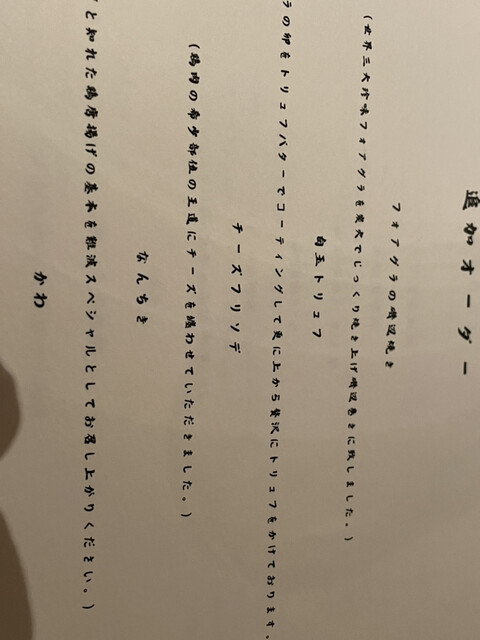 追加オーダー
フォアグラの磯辺焼き
(世界三大珍味フォアグラを炭火でじっくり焼き上げ磯辺巻きに致しました。)
白玉トリュフ
ラの卵をトリュフバターでコーティングして更に上から贅沢にトリュフをかけております。
チーズフリソデ
(鶏肉の希少部位の王道にチーズを纏わせていただきました。)
なんちき
と知れた鶏唐揚げの基本を難波スペシャルとしてお召し上がりください。)
かわ